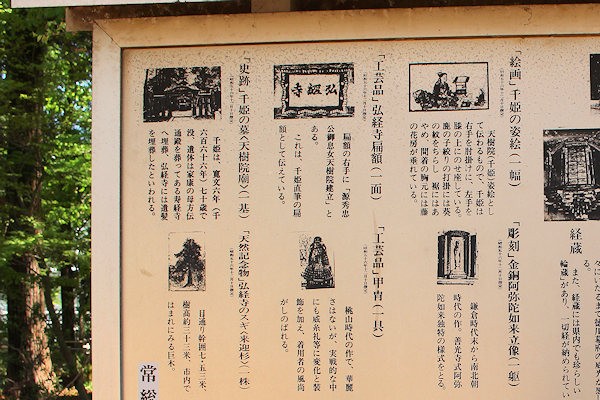 経蔵
る。
また、経蔵には県内でも珍らしい
輪蔵があり、一切経が納められてい
「絵画」千姫の姿絵(一幅)
天樹院(千姫)姿絵とし
て伝わるもので、千姫は
右手を肘掛けに、左手を
膝の上にのせ座している。
鹿の子絞りの打掛には葵
の紋をちらし、裾にはあ
やめ、間着の胸元には藤
の花房が垂れている。
「彫刻」金銅阿弥陀如来立像(一躯)
鎌倉時代末から南北朝
時代の作。善光寺式阿弥
陀如来独特の様式をとる。
「工芸品」弘経寺扁額(一面)
弘経寺
扁額の右手に「源秀忠
公御息女天樹院建立」と
ある。
これは、千姫直筆の扁
額として伝えている。
「工芸品」甲冑(一具)
桃山時代の作で、華麗
さはないが、実戦的な中
にも威糸札等に変化と装
飾を加え、着用者の風尚
がしのばれる。
「史跡」千姫の墓〈天樹院廟〉(一基)
千姫は、寛文六年〈千
六百六十六年〉七十歳で
没、遺体は家康の母方伝
通殿を葬ってある寿経寺
へ埋葬、弘経寺には遺髪
を埋葬したといわれる。
「天然記念物」弘経寺のスギ〈来迎杉〉(一株)
目通り幹囲七・五三米、
樹高約三十三米、市内で
はまれにみる巨木。
常総